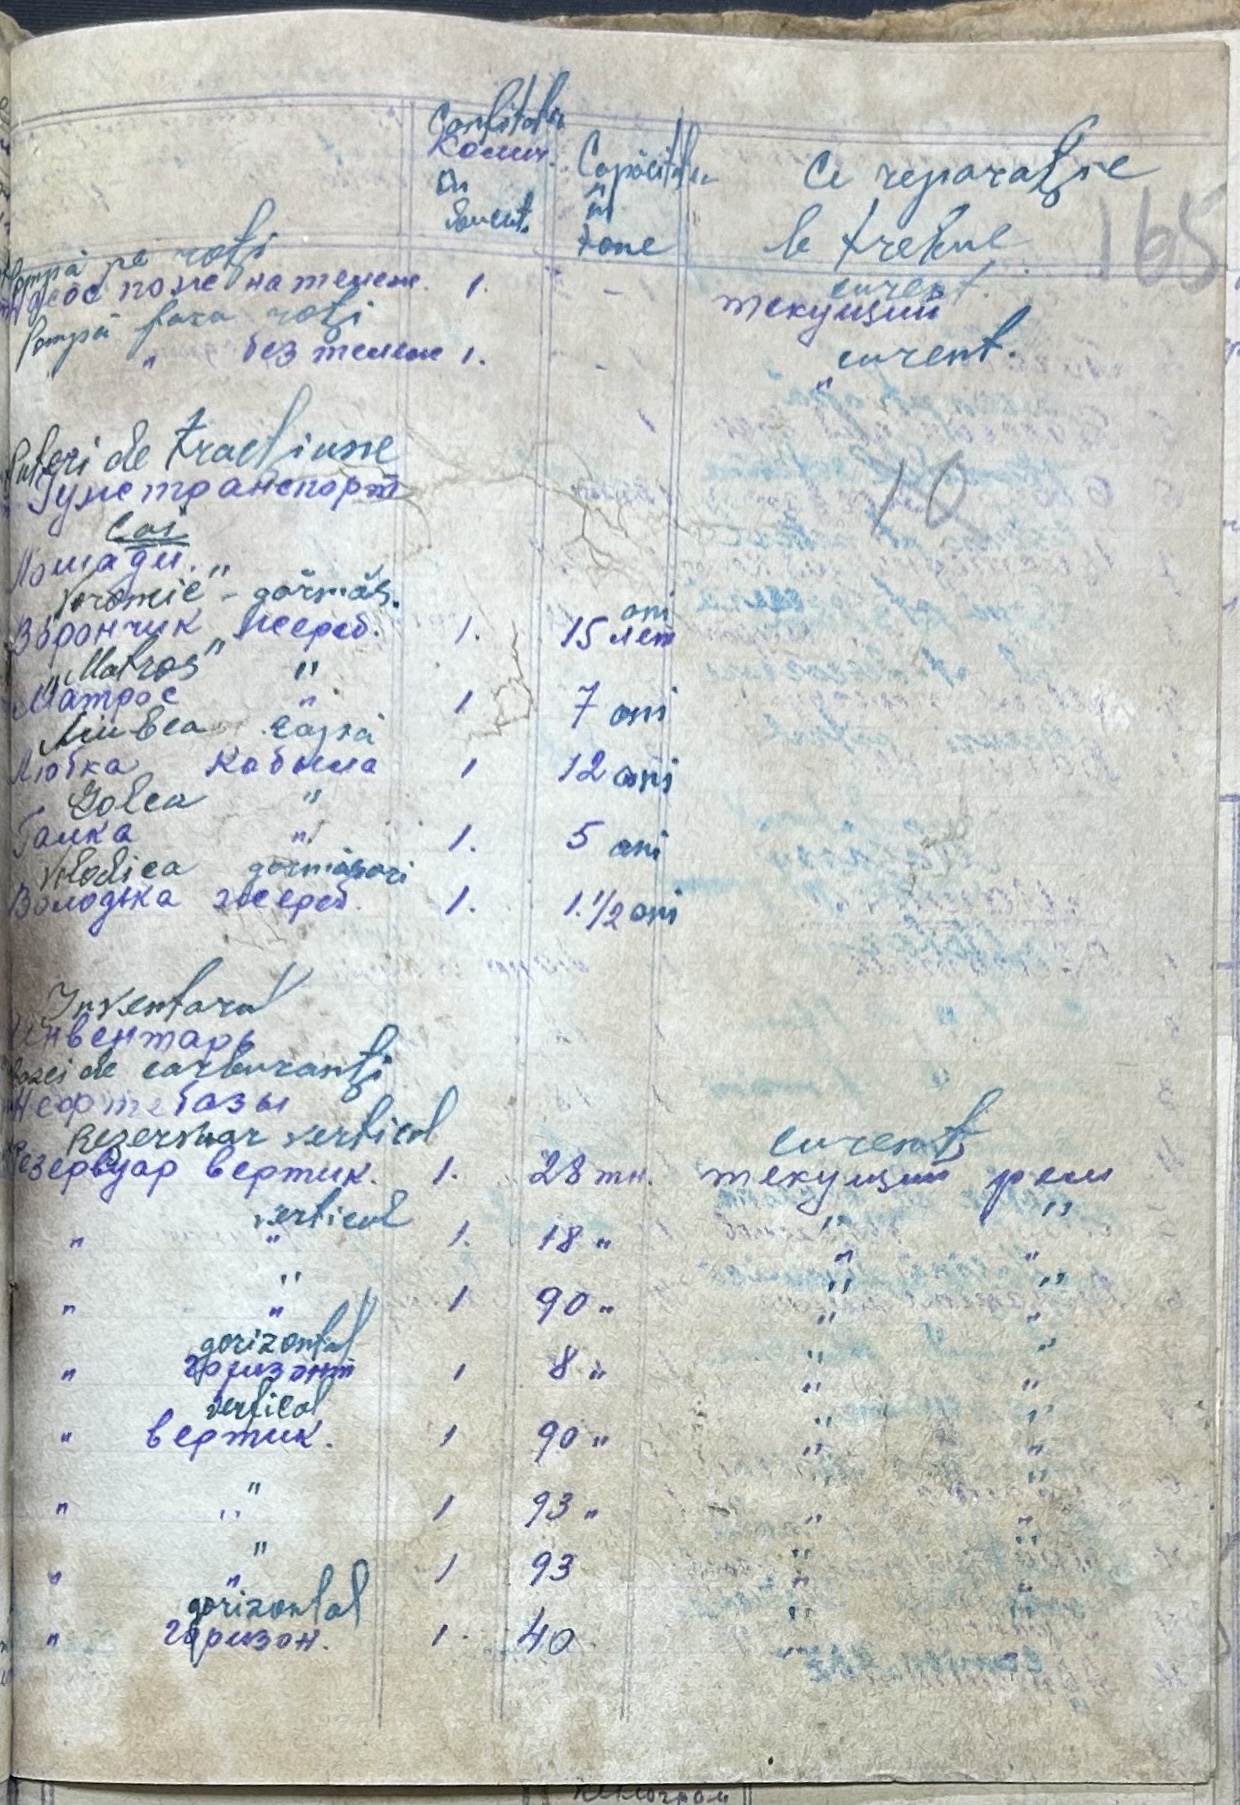 Cantitatea
Колич.
în
Capacitatea
în
tone
Ce reparație
le trebue
165
Pompă pe roți
Насос пож. на тележк. 1. - curent.
текущий
Pompă fără roți
" без тележк 1. - curent.
"
Puteri de tracțiune
Гужтранспорт
10
Cai
Лошади.
"Voroncic" - gărmăs.
Ворончик жереб. 1. 15 лет ani
"Matros" "
Матрос " 1 7 ani
Liubca Eapă
Любка Кобыла 1 12 ani
Golca "
Галка " 1. 5 ani
Volodica gărmăsari
Володька жереб. 1. 1.1/2 ani
Inventarul
Инвентарь
bazei de carburanți
Нефтебазы
Rezervuar vertical curent
Резервуар вертик. 1. 28 тн. текущий рем
vertical " "
" " 1. 18 " " "
" " "
" " 1 90 " " "
gorizontal "
" горизонт 1 8 " " "
vertical " "
" вертик. 1 90 " " "
" " "
" " 1 93 " " "
" " "
" " 1 93 " "
gorizontal "
" горизон. 1. 40 " "